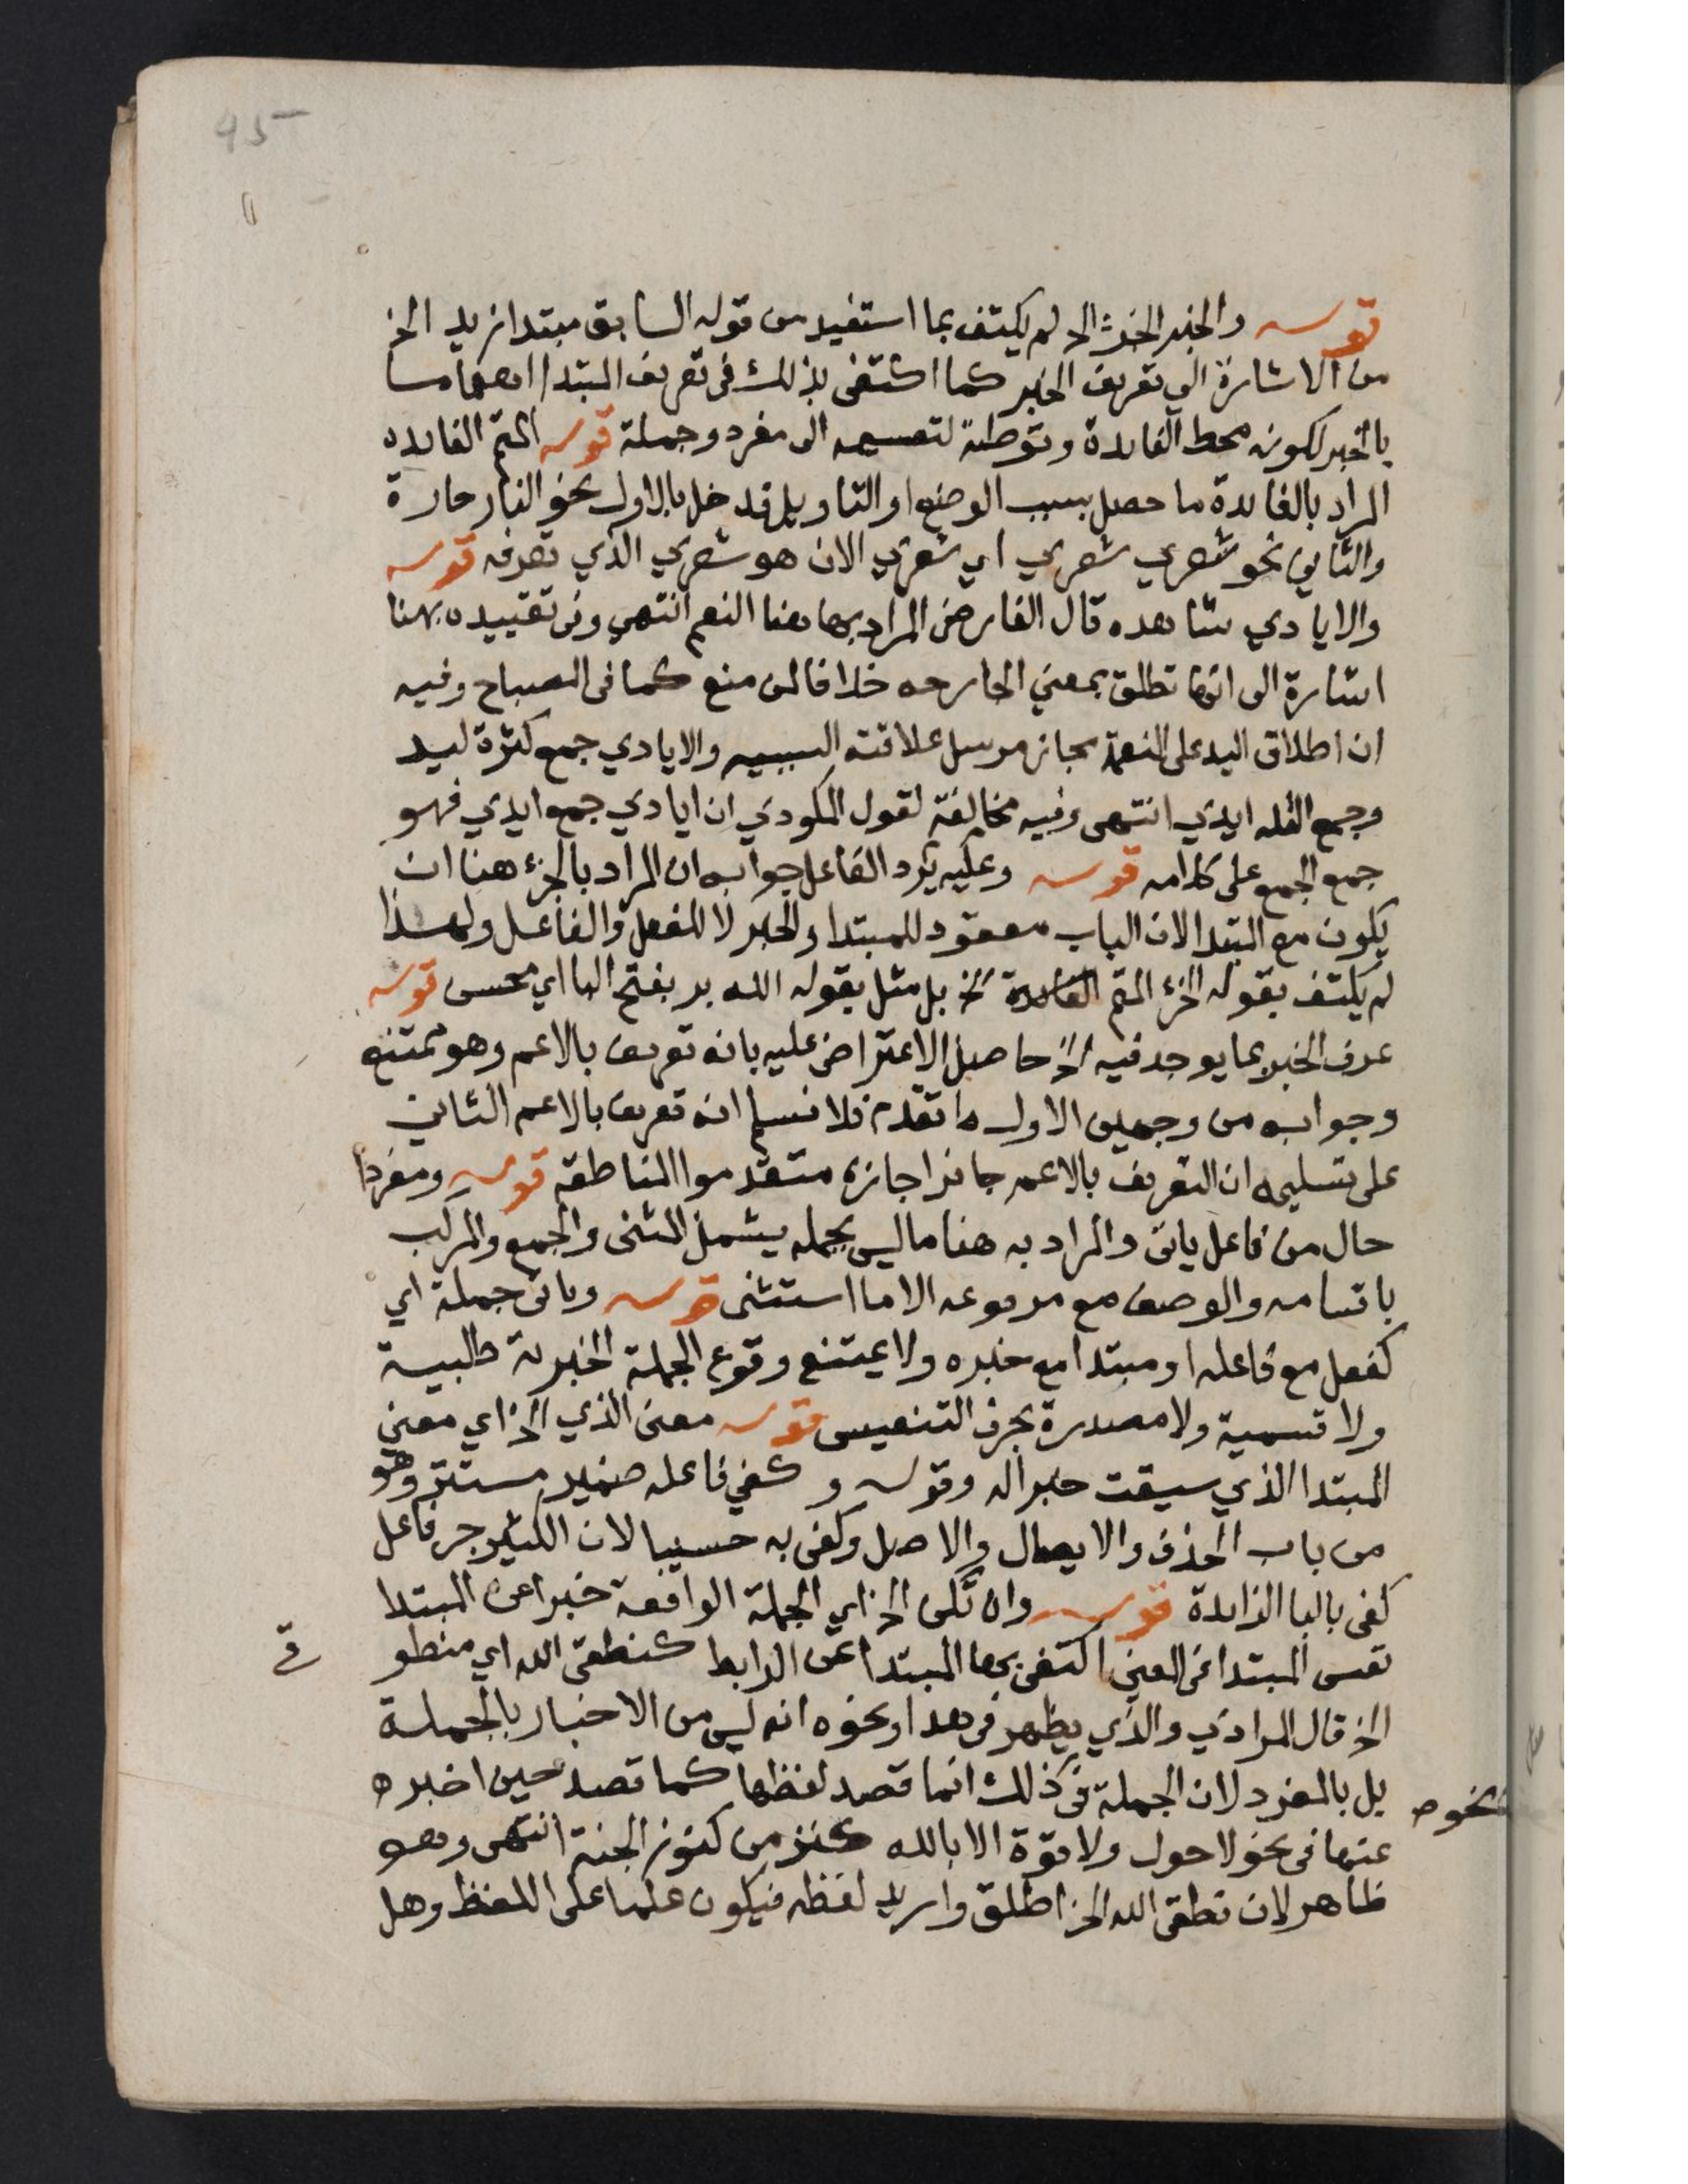 45
قوله والخبر الجزء الخ لم يكتف بما استفيد من قوله السابق مبتدا زيد الخ
من الاشارة الى تعريف الخبر كما اكتفى بذلك في تعريف المبتدا اهتماما
بالخبر لكونه محط الفايدة وتوطئة لتقسيمه الى مفرد وجملة قوله المتم الفايده
المراد بالفايدة ما حصل بسبب الوضع او التاويل فدخل بالاول نحو النار حارة
والثاني نحو شعري شعري اي شعري الان هو شعري الذي تعرفه قوله
والايادي شاهده قال الفارضى المراد بها هنا النعم انتهى وفى تقييده بهنا
اشارة الى انها تطلق بمعني الجارحه خلافا لمن منع كما فى المصباح وفيه
ان اطلاق اليد على النعمة مجاز مرسل علاقته السببيه والايادي جمع كثرة ليد
وجمع القله ايدي انتهى وفيه مخالفة لقول المكودي ان ايادي جمع ايدي فهو
جمع الجمع على كلامه قوله وعليه يرد الفاعل جوابه ان المراد بالجزء هنا ان
يكون مع المبتدا لان الباب معقود للمبتدا والخبر لا للفعل والفاعل ولهذا
لم يكتف بقوله الجزء المتم الفايدة الخ بل مثل بقوله الله بر بفتح البا اي محسن قوله
عرف الخبر بما يوجد فيه الخ حاصل الاعتراض عليه بانه تعريف بالاعم وهو ممتنع
وجوابه من وجهين الاول ما تقدم فلا نسلم انه تعريف بالاعم الثاني
على تسليمه ان التعريف بالاعم جايز اجازه متقدموا المناطقة قوله ومفردا
حال من فاعل ياتى والمراد به هنا ما ليس بجمله يشمل المثنى والجمع والمركب
باقسامه والوصف مع مرفوعه الا ما استثنى قوله وياتى جملة اي
كفعل مع فاعله او مبتدا مع خبره ولا يمتنع وقوع الجملة الخبرية طلبية
ولا قسمية ولا مصدرة بحرف التنفيس قوله معنى الذي الخ اي معنى
المبتدا الذي سيقت خبرا له وقوله وكفي فاعله ضمير مستتر وهو
من باب الحذف والايصال والاصل وكفى به حسيبا لان الكثير جر فاعل
كفى بالبا الزايدة قوله وان تكن الخ اي الجملة الواقعة خبرا عن المبتدا
نفس المبتدا فى المعنى اكتفى بها المبتدا عن الرابط كنطقى الله اي منطو
قي
الخ قال المرادي والذي يظهر فى هذا ونحوه انه ليس من الاخبار بالجملة
بل بالمفرد لان الجملة فى ذلك انما قصد لفظها كما قصد حين اخبر ه
نحوه
عنها فى نحو لا حول ولا قوة الا بالله كنز من كنوز الجنة انتهى وهو
ظاهر لان نطقى الله الخ اطلق واريد لفظه فيكون علما على اللفظ وهل